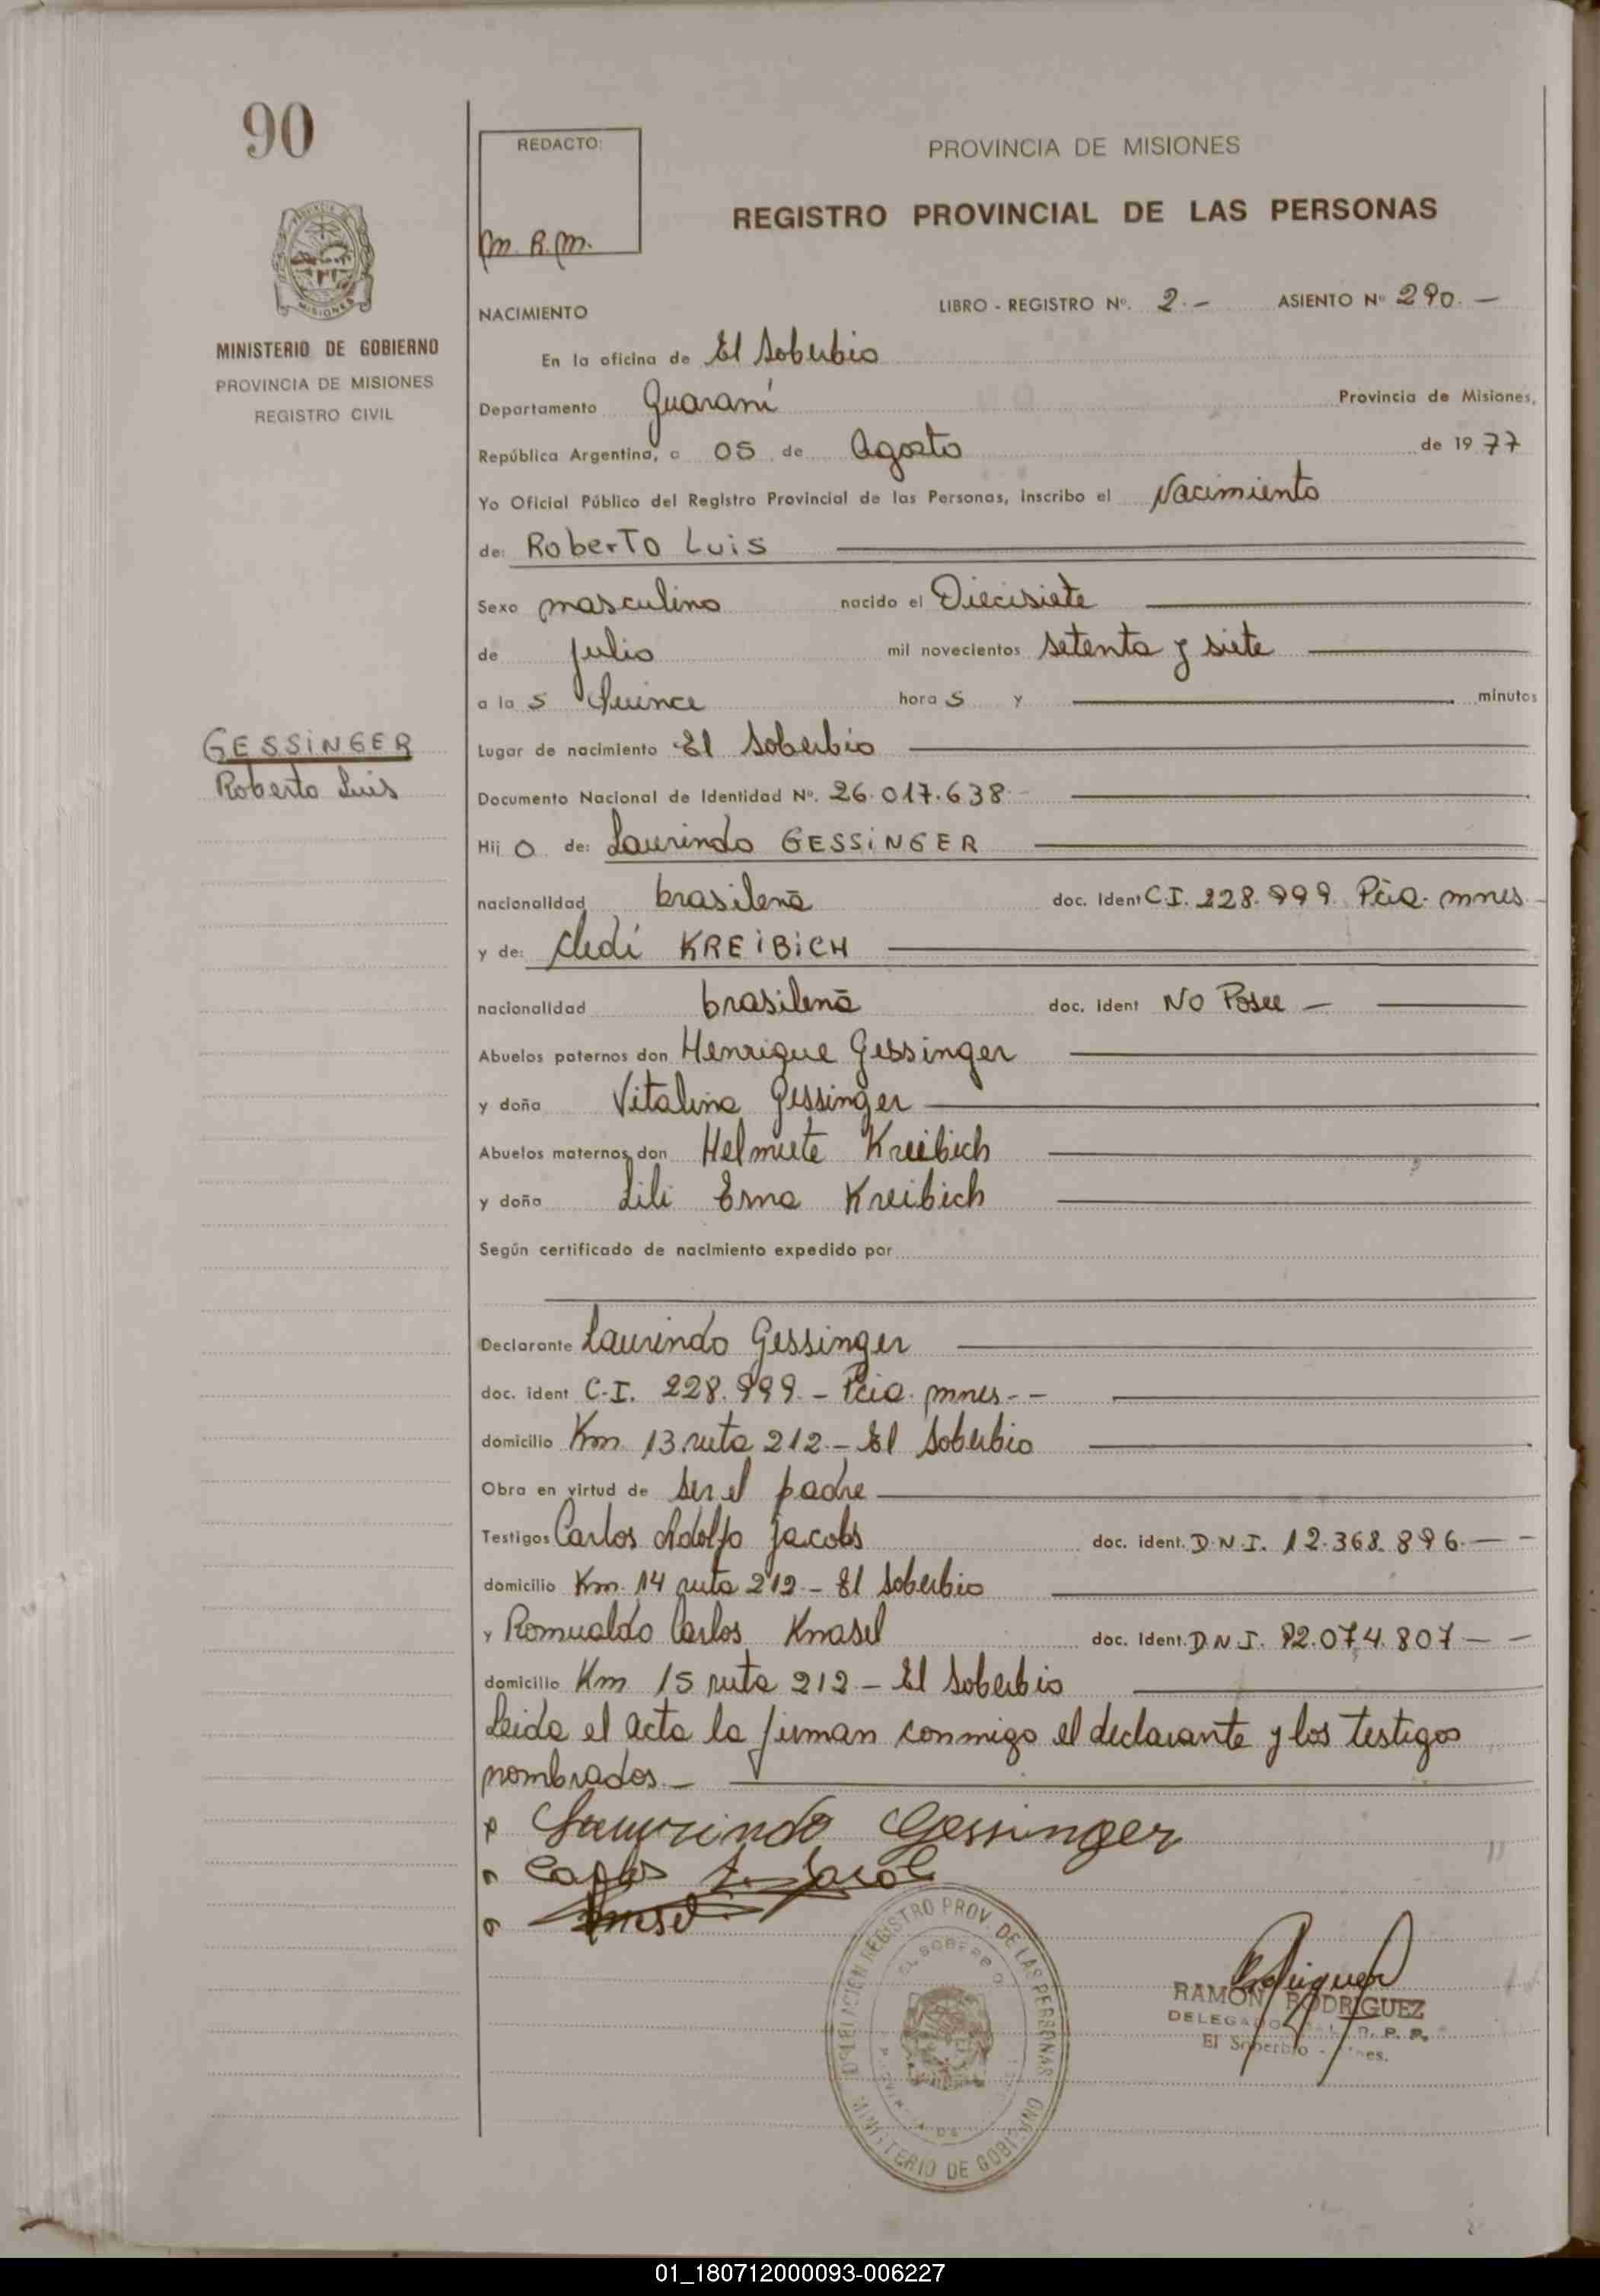 90
REDACTO:
M. R. M.
PROVINCIA DE MISIONES
REGISTRO PROVINCIAL DE LAS PERSONAS
MINISTERIO DE GOBIERNO
PROVINCIA DE MISIONES
REGISTRO CIVIL
NACIMIENTO LIBRO - REGISTRO Nº. 2.- ASIENTO Nº 290.-
En la oficina de El Soberbio
Departamento Guaraní Provincia de Misiones,
República Argentina, a 05 de Agosto de 1977
Yo Oficial Público del Registro Provincial de las Personas, inscribo el Nacimiento
de: Roberto Luis
Sexo masculino nacido el Diecisiete
de julio mil novecientos setenta y siete
a la s Quince hora s y minutos
GESSINGER
Roberto Luis
Lugar de nacimiento El Soberbio
Documento Nacional de Identidad Nº. 26.017.638.-
Hij o de: Laurindo GESSINGER
nacionalidad brasilena doc. Ident C.I. 228.999. Pcia. mnes.-
y de: Cledi KREIBICH
nacionalidad brasilena doc. ident No Posee -
Abuelos paternos don Henrique Gessinger
y doña Vitalina Gessinger
Abuelos maternos don Helmute Kreibich
y doña Lili Erna Kreibich
Según certificado de nacimiento expedido por
Declarante Laurindo Gessinger
doc. ident C.I. 228.999.- Pcia. mnes.- -
domicilio Km 13 ruta 212.- El Soberbio
Obra en virtud de ser el padre
Testigos Carlos Adolfo Jacobs doc. ident. D.N.I. 12.368.896.- -
domicilio Km. 14 ruta 212.- El Soberbio
y Romualdo Carlos Knasel doc. Ident. D.N.I. 92.074.807 - -
domicilio Km 15 ruta 212 - El Soberbio
Leida el acta la firman conmigo el declarante y los testigos
nombrados.-
Laurindo Gessinger
Carlos A. Jacob
Knasel
DELEGACION REGISTRO PROV. DE LAS PERSONAS
EL SOBERBIO
MINISTERIO DE GOBIERNO
Rodriguez
RAMON RODRIGUEZ
DELEGADO R. P. P.
El Soberbio - Mnes.
01_180712000093-006227